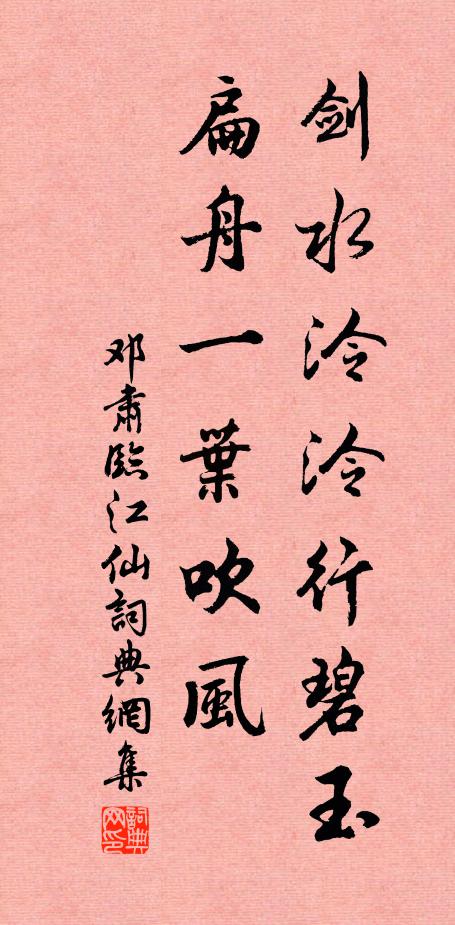 剑水泠泠行碧玉
扁舟一葉吹風
邓肅臨江仙詞典網集
詞典网印